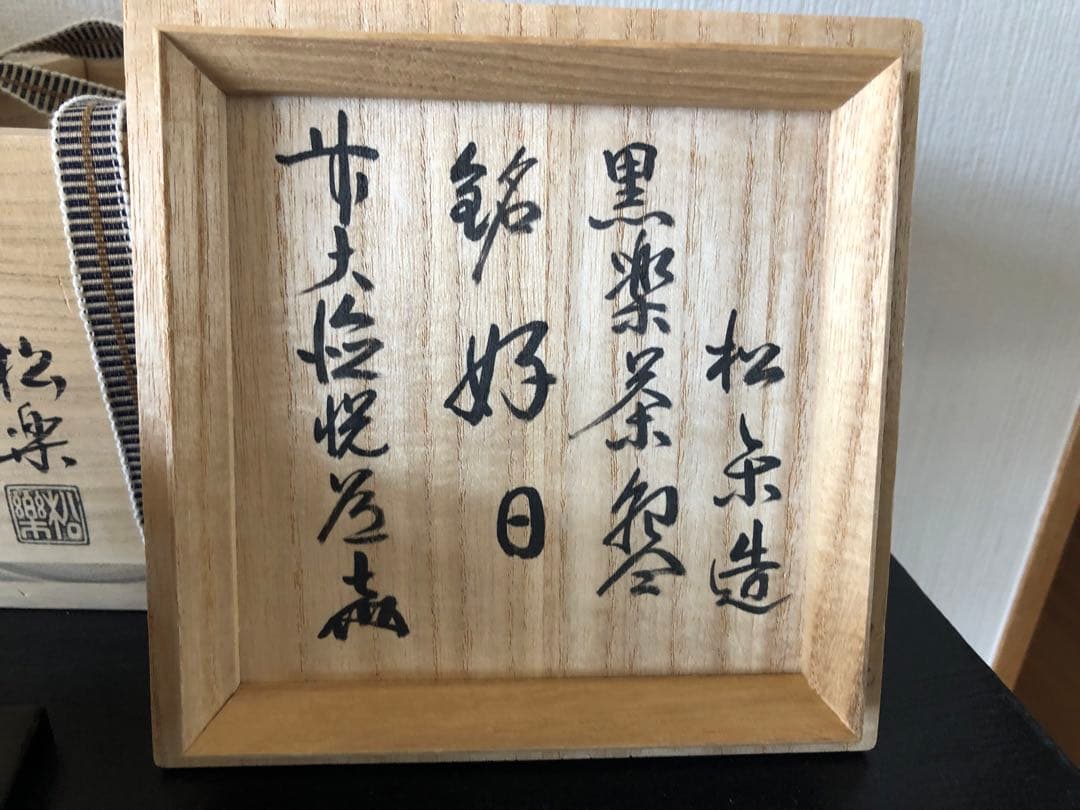 松楽造
黒楽茶盌
銘 好日
大徳悦道
松楽
松樂